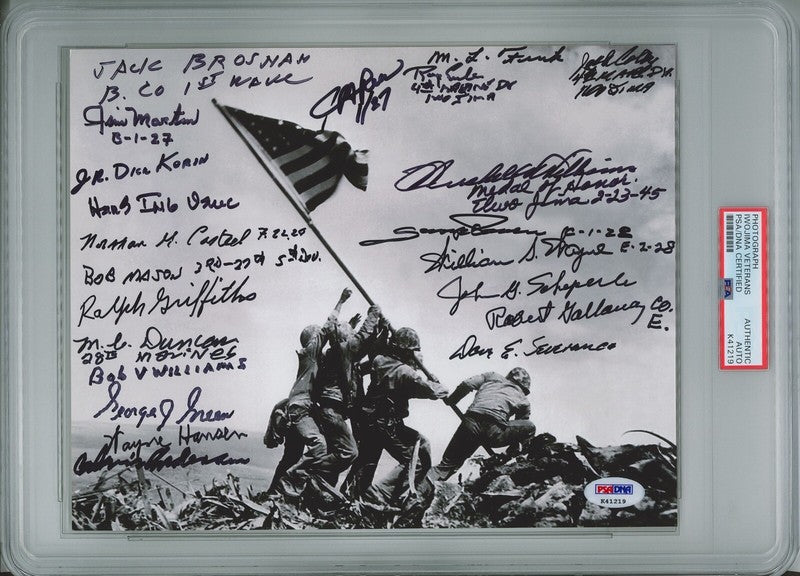 JACK BROSNAN
B. CO 1ST WAVE
Jim Martin
E-1-27
JR. Dick Korin
Norman H.
BOB MASON 3RD-27th 5th DIV.
Ralph Griffiths
M.C. Duncan
28th MARINES
Bob V WILLIAMS
George J Green
Wayne Hansen
Anderson
1/27
M. L. Funk
4th MARINE DV
IWO JIMA
4th MARDIV.
IWO JIMA
Hershel W Williams
Medal of Honor
Iwo Jima 2-23-45
E-1-28
William S. Wayne E-2-28
John G. Scheperle
Robert Gallaway Co.
E.
Don E. Severance
PSA/DNA
K41219
PHOTOGRAPH
IWOJIMA VETERANS
PSA/DNA CERTIFIED
PSA
AUTHENTIC
AUTO
K41219